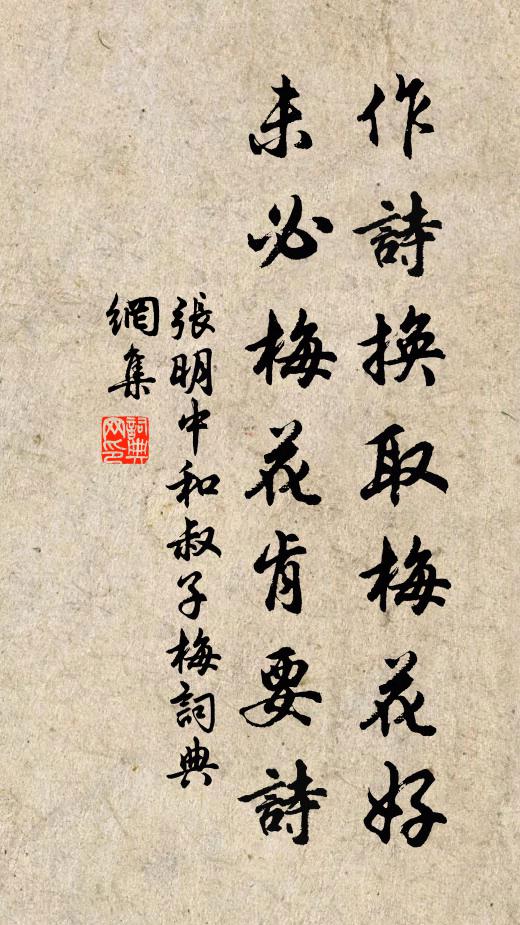 作詩換取梅花好
未必梅花肯要詩
張明中和叔子梅詞典
網集
詞典网印